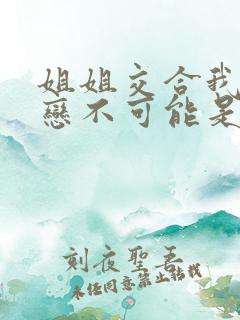 姐姐交合我
戀不可能是
刻夜聖吾
未任同意禁止轉載